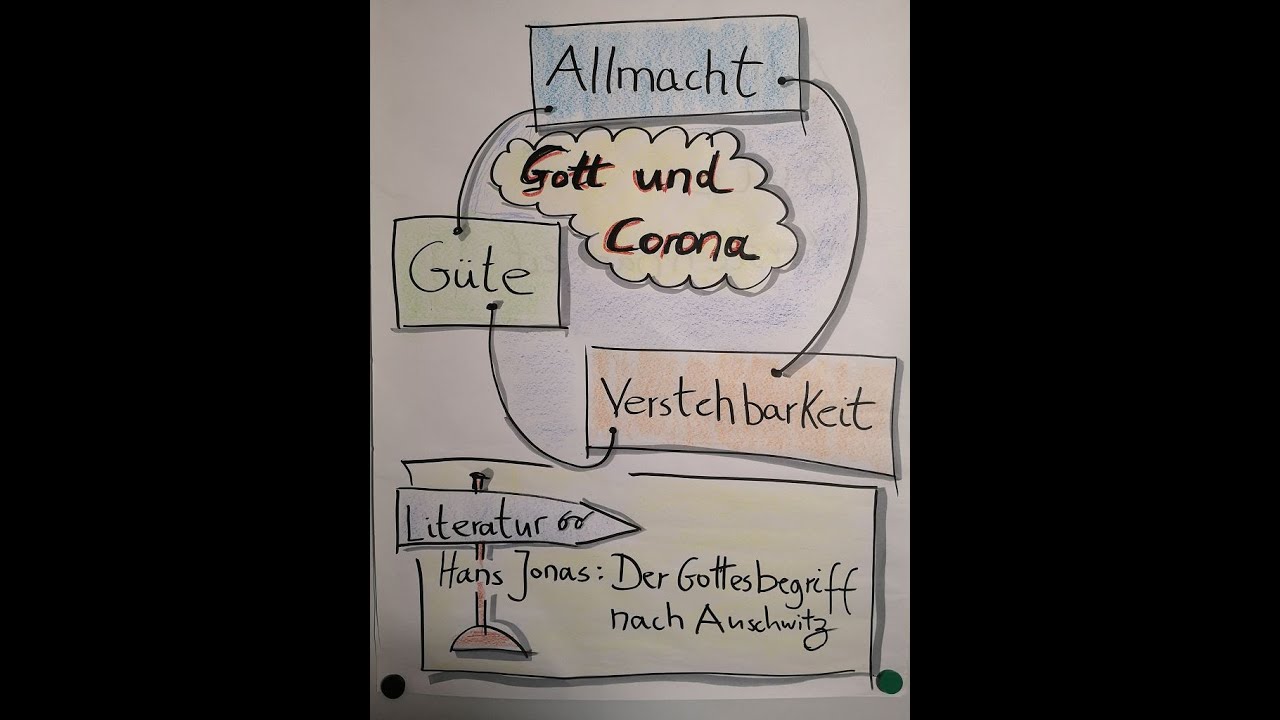 Allmacht
Gott und
Corona
Güte
Verstehbarkeit
Literatur
Hans Jonas: Der Gottesbegriff
nach Auschwitz